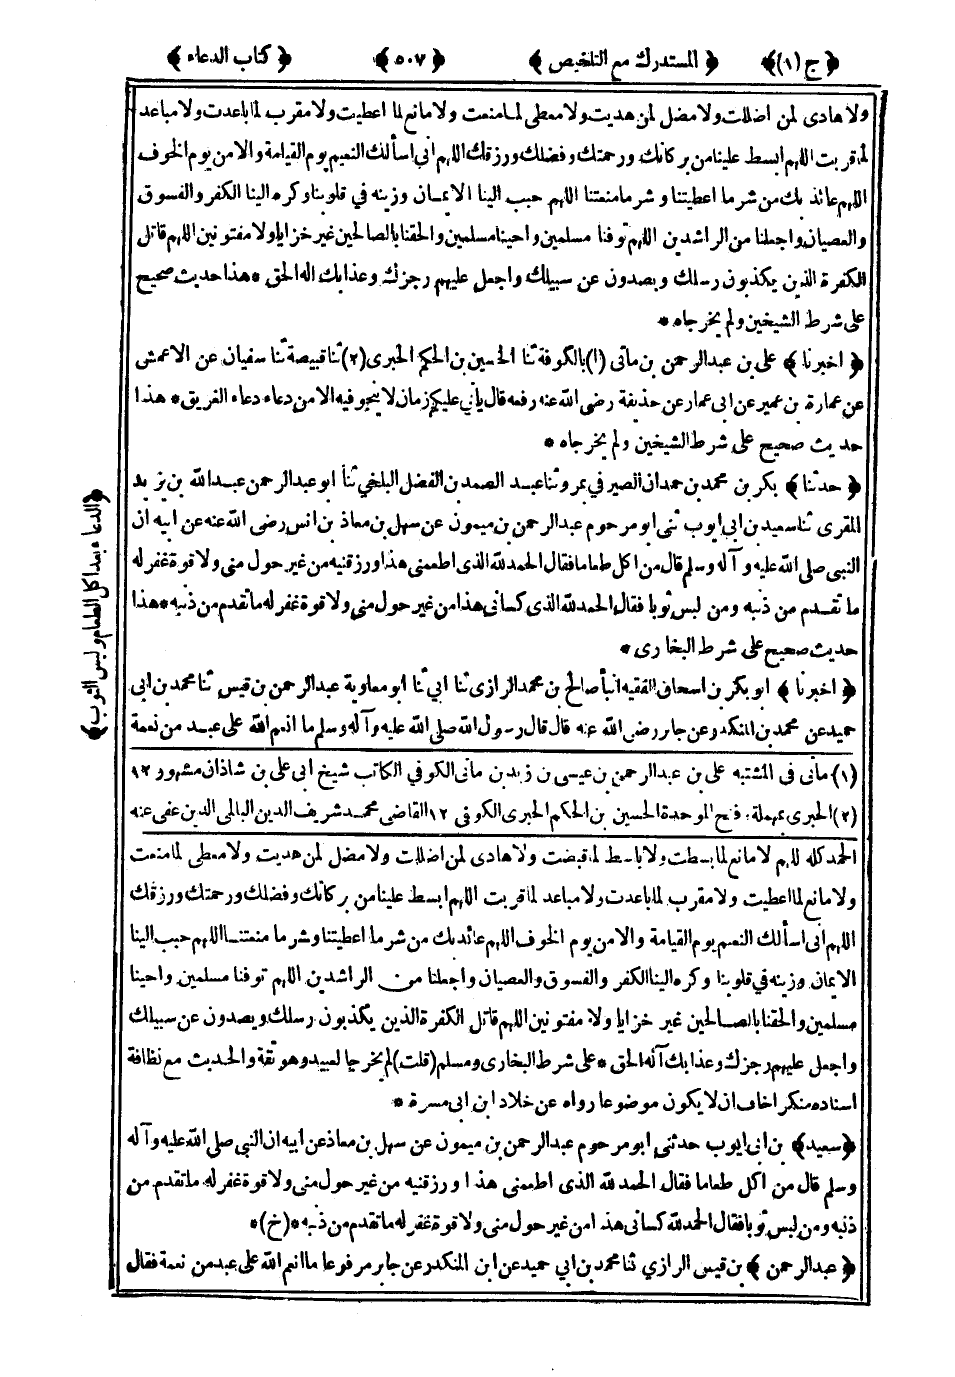 ﴿ ج (١) ﴾ ﴿ المستدرك مع التلخيص ﴾ ﴿ ٥٠٧ ﴾ ﴿ كتاب الدعاء ﴾
ولا هادى لمن اضللت ولا مضل لمن هديت ولا معطى لما منعت ولا مانع لما اعطيت ولا مقرب لما باعدت ولا مباعد
لما قربت اللهم ابسط علينا من بركاتك ورحمتك وفضلك ورزقك اللهم انى اسألك النعيم يوم القيامة والامن يوم الخوف
اللهم عائذ بك من شر ما اعطيتنا وشر ما منعتنا اللهم حبب الينا الايمان وزينه في قلوبنا وكره الينا الكفر والفسوق
والعصيان واجعلنا من الراشدين اللهم توفنا مسلمين واحينا مسلمين والحقنا بالصالحين غير خزايا ولا مفتونين اللهم قاتل
الكفرة الذين يكذبون رسلك ويصدون عن سبيلك واجعل عليهم رجزك وعذابك اله الحق * هذا حديث صحيح
على شرط الشيخين ولم يخرجاه *
﴿ اخبرنا ﴾ على بن عبدالرحمن بن ماتى (١) بالكوفة ثنا الحسين بن الحكم الحبرى (٢) ثنا قبيصة ثنا سفيان عن الاعمش
عن عمارة بن عمير عن ابى عمار عن حذيفة رضى الله عنه رفعه قال يأتى عليكم زمان لا ينجو فيه الا من دعاء دعاء الغريق * هذا
حديث صحيح على شرط الشيخين ولم يخرجاه *
﴿ حدثنا ﴾ بكر بن محمد بن حمدان الصيرفى بمرو ثنا عبد الصمد بن الفضل البلخى ثنا ابو عبدالرحمن عبدالله بن يزيد
المقرى ثنا سعيد بن ابى ايوب ثنى ابو مرحوم عبدالرحمن بن ميمون عن سهل بن معاذ بن انس رضى الله عنه عن ابيه ان
النبى صلى الله عليه وآله وسلم قال من اكل طعاما فقال الحمد لله الذى اطعمنى هذا ورزقنيه من غير حول منى ولا قوة غفر له
ما تقدم من ذنبه ومن لبس ثوبا فقال الحمد لله الذى كسانى هذا من غير حول منى ولا قوة غفر له ما تقدم من ذنبه * هذا
حديث صحيح على شرط البخارى *
﴿ اخبرنا ﴾ ابو بكر بن اسحاق الفقيه انبأ صالح بن محمد الرازى ثنا ابى ثنا ابو معاوية عبدالرحمن بن قيس ثنا محمد بن ابى
حميد عن محمد بن المنكدر عن جابر رضى الله عنه قال قال رسول الله صلى الله عليه وآله وسلم ما انعم الله على عبد من نعمة
﴿ الدعاء بعد اكل الطعام ولبس الثوب ﴾
(١) ماتى فى المشتبه على بن عبدالرحمن بن عيسى بن زيد بن ماتى الكوفى الكاتب شيخ ابى على بن شاذان مشهور ١٢
(٢) الحبرى بمهملة وفتح الموحدة الحسين بن الحكم الحبرى الكوفى ١٢ القاضى محمد شريف الدين البالمى الدين عفى عنه
الحمد كله اللهم لا مانع لما بسطت ولا باسط لما قبضت ولا هادى لمن اضللت ولا مضل لمن هديت ولا معطى لما منعت
ولا مانع لما اعطيت ولا مقرب لما باعدت ولا مباعد لما قربت اللهم ابسط علينا من بركاتك وفضلك ورحمتك ورزقك
اللهم انى اسألك النعيم يوم القيامة والامن يوم الخوف اللهم عائذ بك من شر ما اعطيتنا وشر ما منعتنا اللهم حبب الينا
الايمان وزينه في قلوبنا وكره الينا الكفر والفسوق والعصيان واجعلنا من الراشدين اللهم توفنا مسلمين واحينا
مسلمين والحقنا بالصالحين غير خزايا ولا مفتونين اللهم قاتل الكفرة الذين يكذبون رسلك ويصدون عن سبيلك
واجعل عليهم رجزك وعذابك آله الحق * على شرط البخارى ومسلم (قلت) لم يخرجا لعبيد وهو ثقة والحديث مع نظافة
اسناده منكر اخاف ان لا يكون موضوعا رواه عن خلاد ابن ابى مسرة *
﴿ سعيد ﴾ بن ابى ايوب حدثنى ابو مرحوم عبدالرحمن بن ميمون عن سهل بن معاذ عن ابيه ان النبى صلى الله عليه وآله
وسلم قال من اكل طعاما فقال الحمد لله الذى اطعمنى هذا ورزقنيه من غير حول منى ولا قوة غفر له ما تقدم من
ذنبه ومن لبس ثوبا فقال الحمد لله كسانى هذا من غير حول منى ولا قوة غفر له ما تقدم من ذنبه * (خ) *
﴿ عبدالرحمن ﴾ بن قيس الرازي ثنا محمد بن ابي حميد عن ابن المنكدر عن جابر مرفوعا ما انعم الله على عبد من نعمة فقال